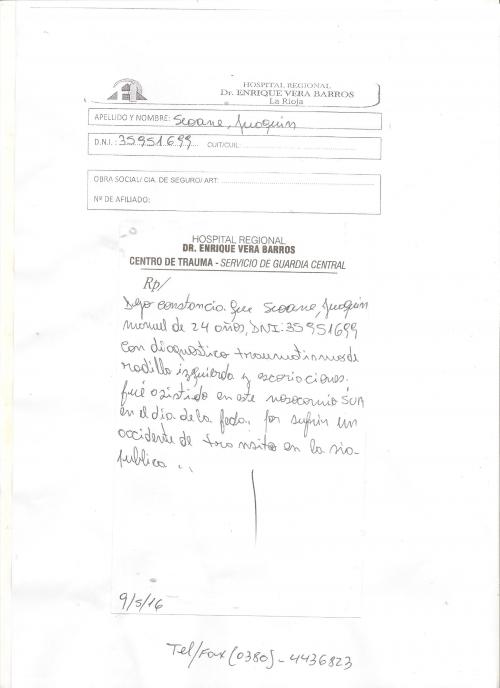 HOSPITAL REGIONAL
Dr. ENRIQUE VERA BARROS
La Rioja
APELLIDO Y NOMBRE: Seoane, Juaquin
D.N.I.: 35951699 CUIT/CUIL:
OBRA SOCIAL/ CIA. DE SEGURO/ ART:
Nº DE AFILIADO:
HOSPITAL REGIONAL
DR. ENRIQUE VERA BARROS
CENTRO DE TRAUMA - SERVICIO DE GUARDIA CENTRAL
Rp/
Dejo constancia que Seoane, Juaquin
manuel de 24 años, DNI: 35951699
con diagnostico traumatismo de
rodilla izquierda y escoriaciones.
fué asistido en este nosocomio SUA
en el día de la fecha por sufrir un
accidente de transito en la via-
publica...
9/5/16
Tel/Fax (0380) - 4436823